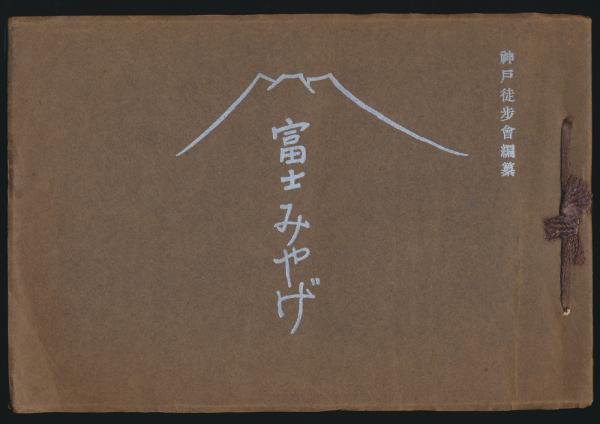 神戸徒歩會編纂
富士みやげ